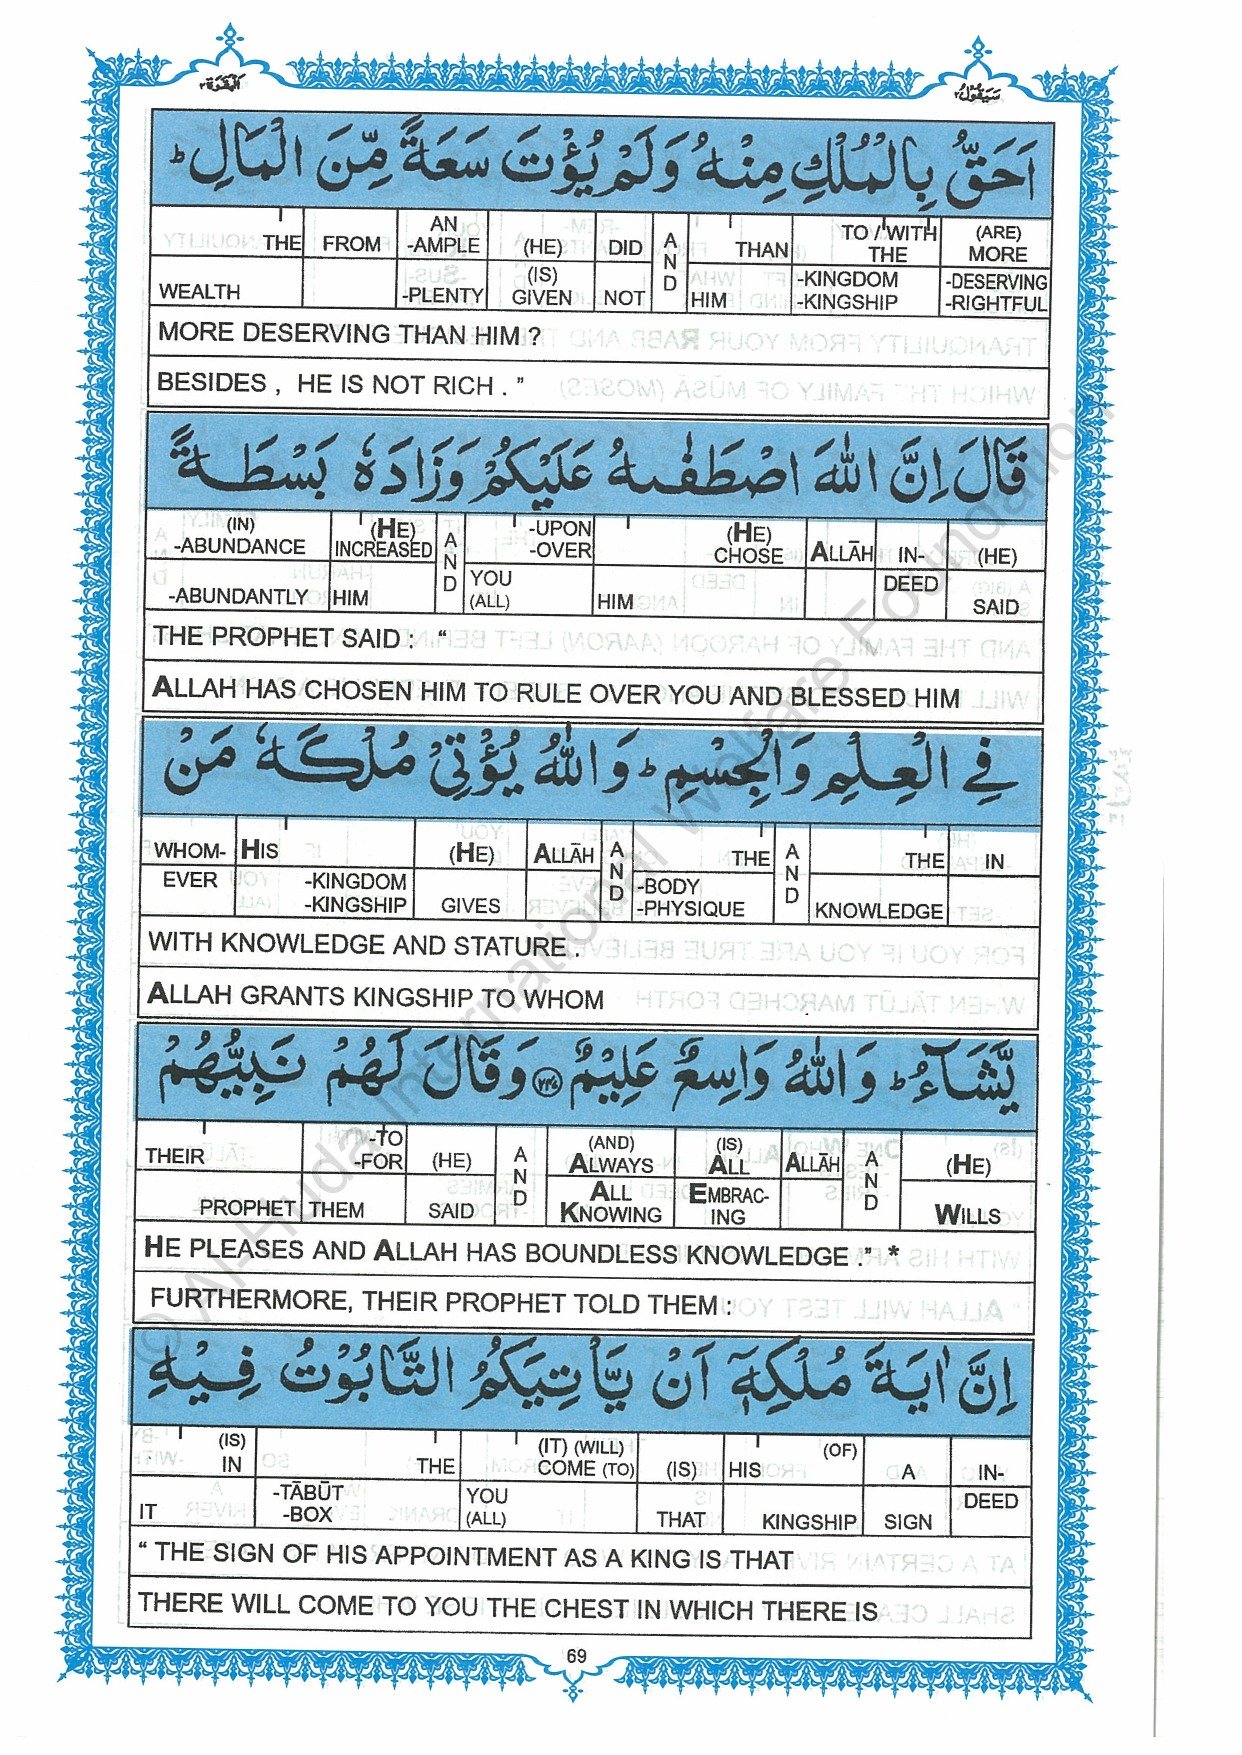 البقرة ٢
سيقول ٢
اَحَقُّ بِالْمُلْكِ مِنْهُ وَلَمْ يُؤْتَ سَعَةً مِّنَ الْمَالِ ؕ
THE FROM AN -AMPLE (HE) DID AND THAN TO / WITH THE (ARE) MORE
WEALTH -PLENTY (IS) GIVEN NOT HIM -KINGDOM -KINGSHIP -DESERVING -RIGHTFUL
MORE DESERVING THAN HIM ?
BESIDES , HE IS NOT RICH . ”
قَالَ اِنَّ اللّٰهَ اصْطَفٰىهُ عَلَيْكُمْ وَزَادَهٗ بَسْطَةً
(IN) -ABUNDANCE (HE) INCREASED AND -UPON -OVER (HE) CHOSE ALLĀH IN- (HE)
-ABUNDANTLY HIM YOU (ALL) HIM DEED SAID
THE PROPHET SAID : “
ALLAH HAS CHOSEN HIM TO RULE OVER YOU AND BLESSED HIM
فِي الْعِلْمِ وَالْجِسْمِ ؕ وَاللّٰهُ يُؤْتِيْ مُلْكَهٗ مَنْ
WHOM- HIS (HE) ALLĀH AND THE AND THE IN
EVER -KINGDOM -KINGSHIP GIVES -BODY -PHYSIQUE KNOWLEDGE
WITH KNOWLEDGE AND STATURE .
ALLAH GRANTS KINGSHIP TO WHOM
يَّشَآءُ ؕ وَاللّٰهُ وَاسِعٌ عَلِيْمٌ ﴿۲۴۷﴾ وَقَالَ لَهُمْ نَبِيُّهُمْ
THEIR -TO -FOR (HE) AND (AND) ALWAYS (IS) ALL ALLĀH AND (HE)
PROPHET THEM SAID ALL KNOWING EMBRAC- ING WILLS
HE PLEASES AND ALLAH HAS BOUNDLESS KNOWLEDGE .” *
FURTHERMORE, THEIR PROPHET TOLD THEM :
اِنَّ اٰيَةَ مُلْكِهٖٓ اَنْ يَّاْتِيَكُمُ التَّابُوْتُ فِيْهِ
(IS) IN THE (IT) (WILL) COME (TO) (IS) HIS (OF) A IN-
IT -TĀBŪT -BOX YOU (ALL) THAT KINGSHIP SIGN DEED
“ THE SIGN OF HIS APPOINTMENT AS A KING IS THAT
THERE WILL COME TO YOU THE CHEST IN WHICH THERE IS
69
© Al-Huda International Welfare Foundation